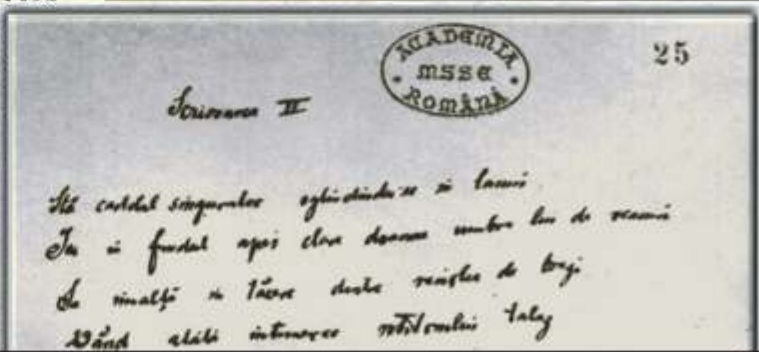 ACADEMIA
MSSE
ROMÂNĂ
25
Scrisoarea III
Stă castelul singuratec oglindindu-se in lacuri
Iar in fundul apei clare doarme umbra lui de veacuri
Se inalță in tăcere dintre rariștea de brazi
Dând atâta intunerec rotitorului talaz